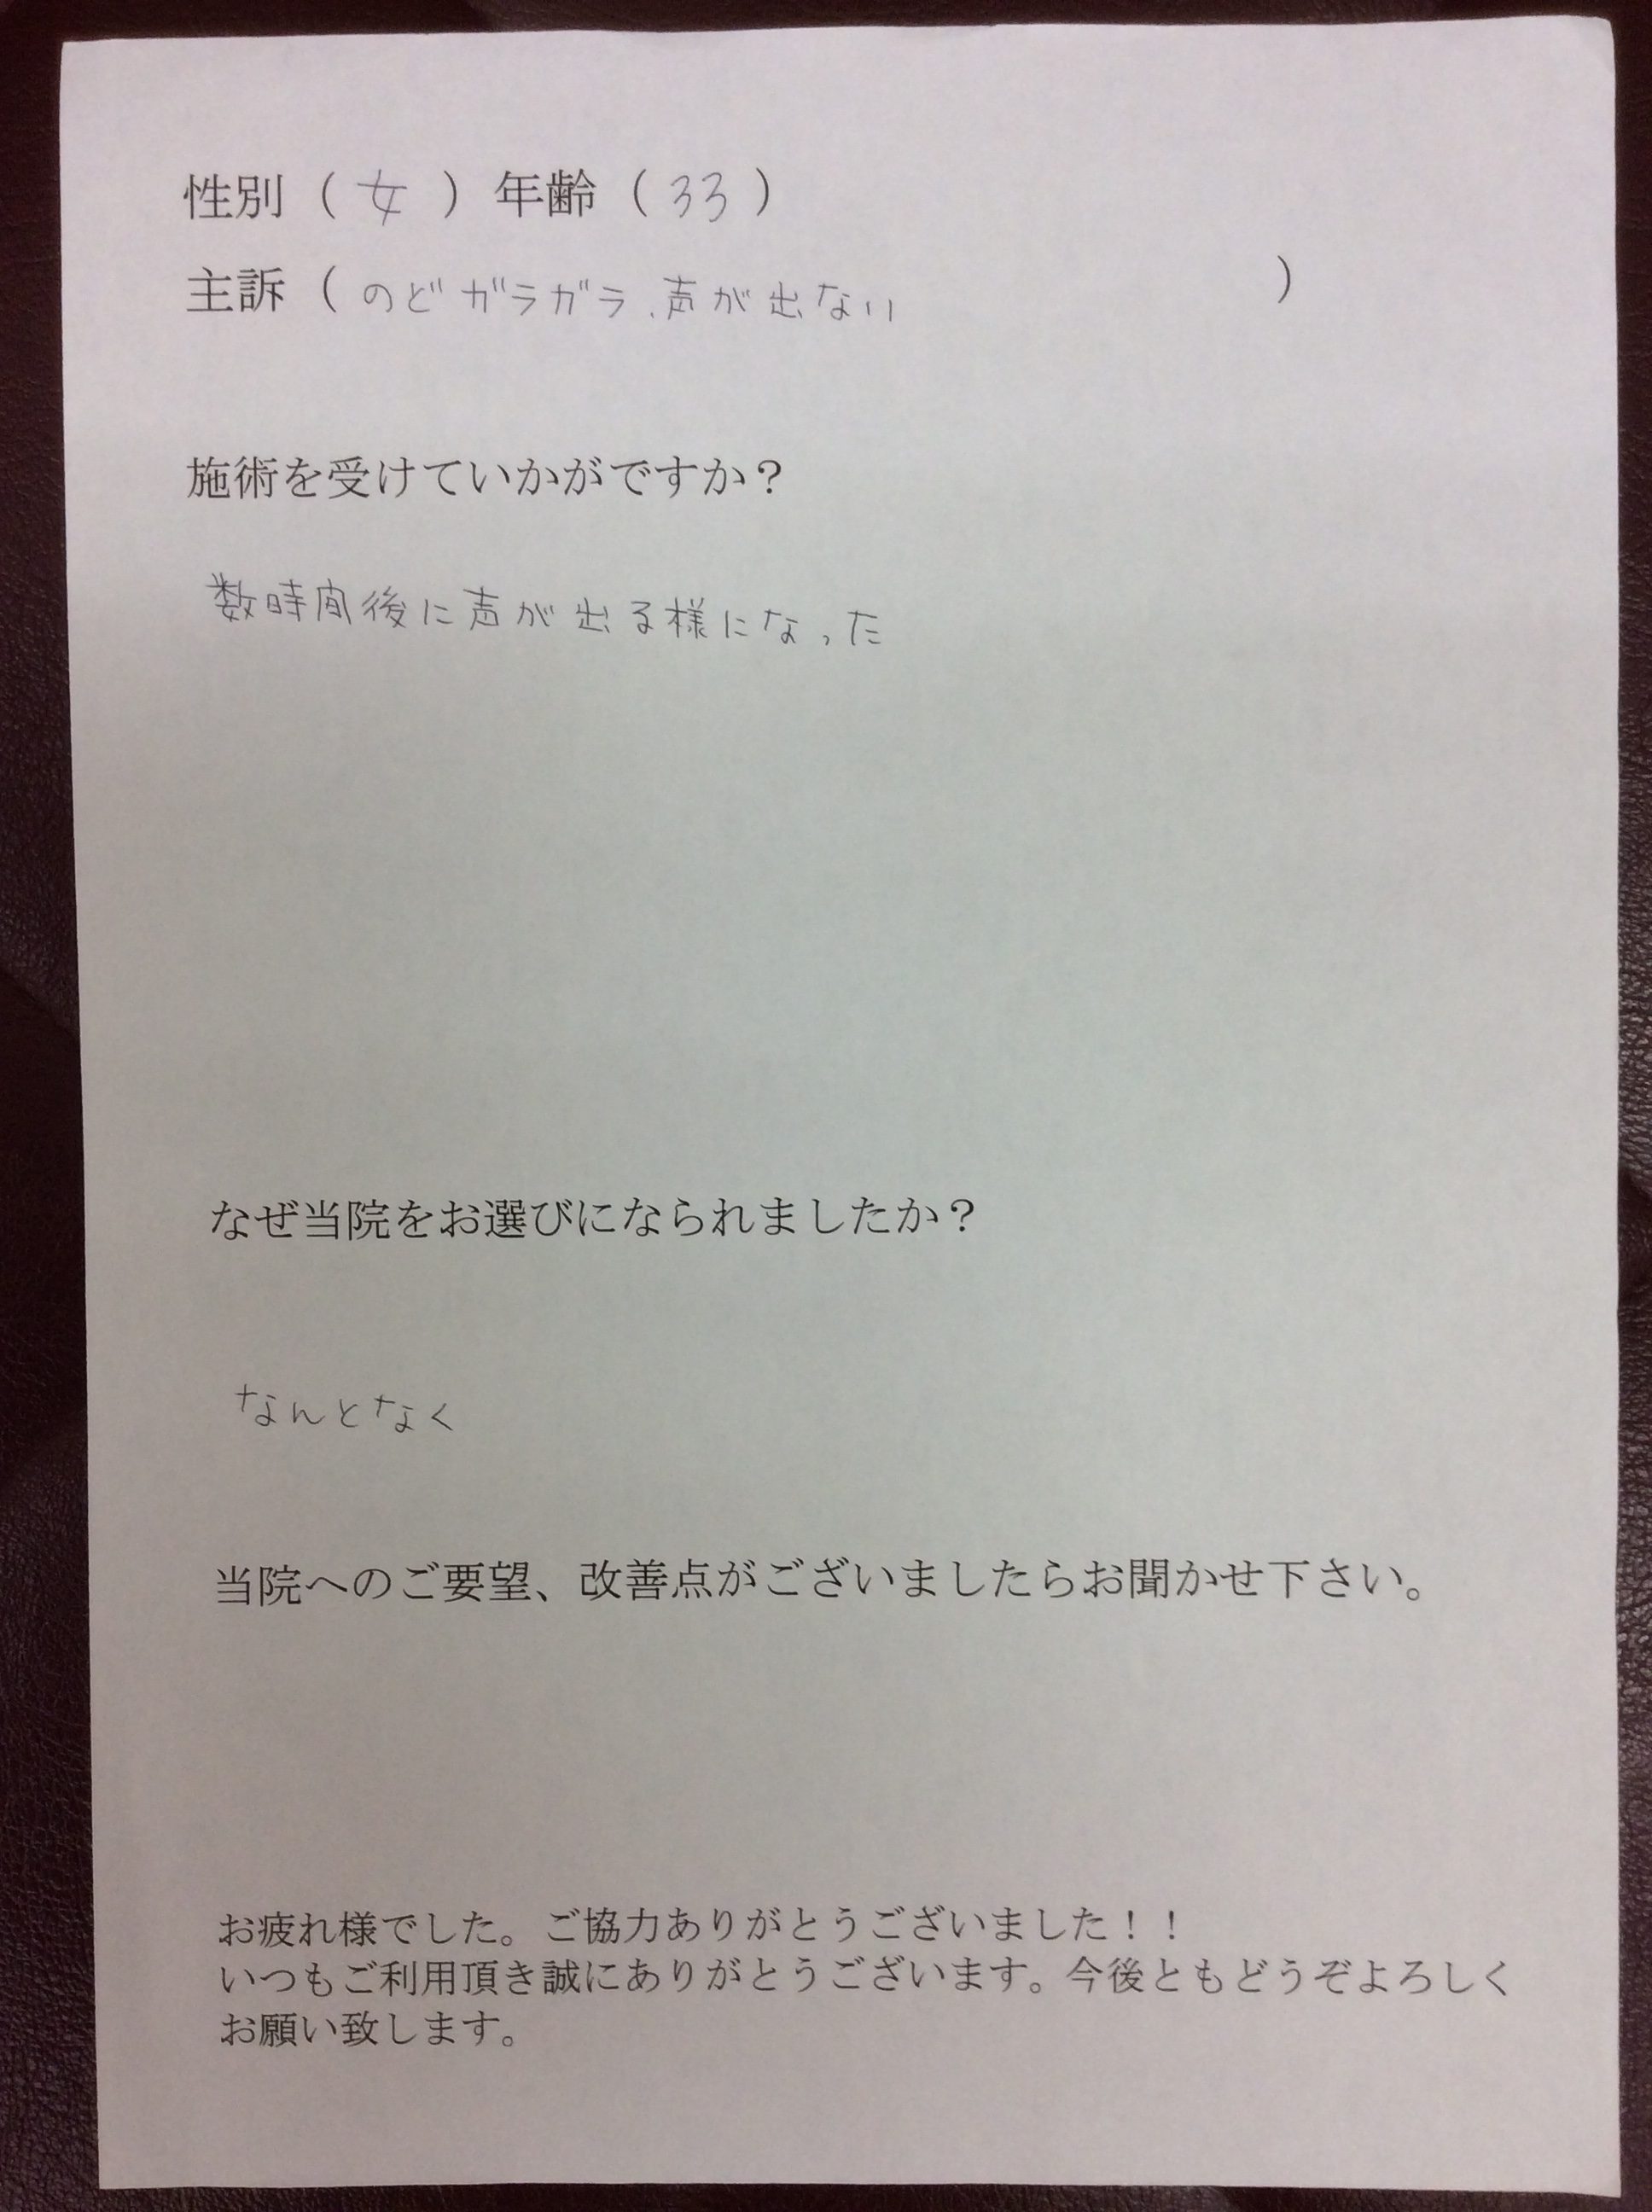 性別（女）年齢（33）
主訴（のどガラガラ、声が出ない）
施術を受けていかがですか？
数時間後に声が出る様になった
なぜ当院をお選びになられましたか？
なんとなく
当院へのご要望、改善点がございましたらお聞かせ下さい。
お疲れ様でした。ご協力ありがとうございました！！
いつもご利用頂き誠にありがとうございます。今後ともどうぞよろしく
お願い致します。